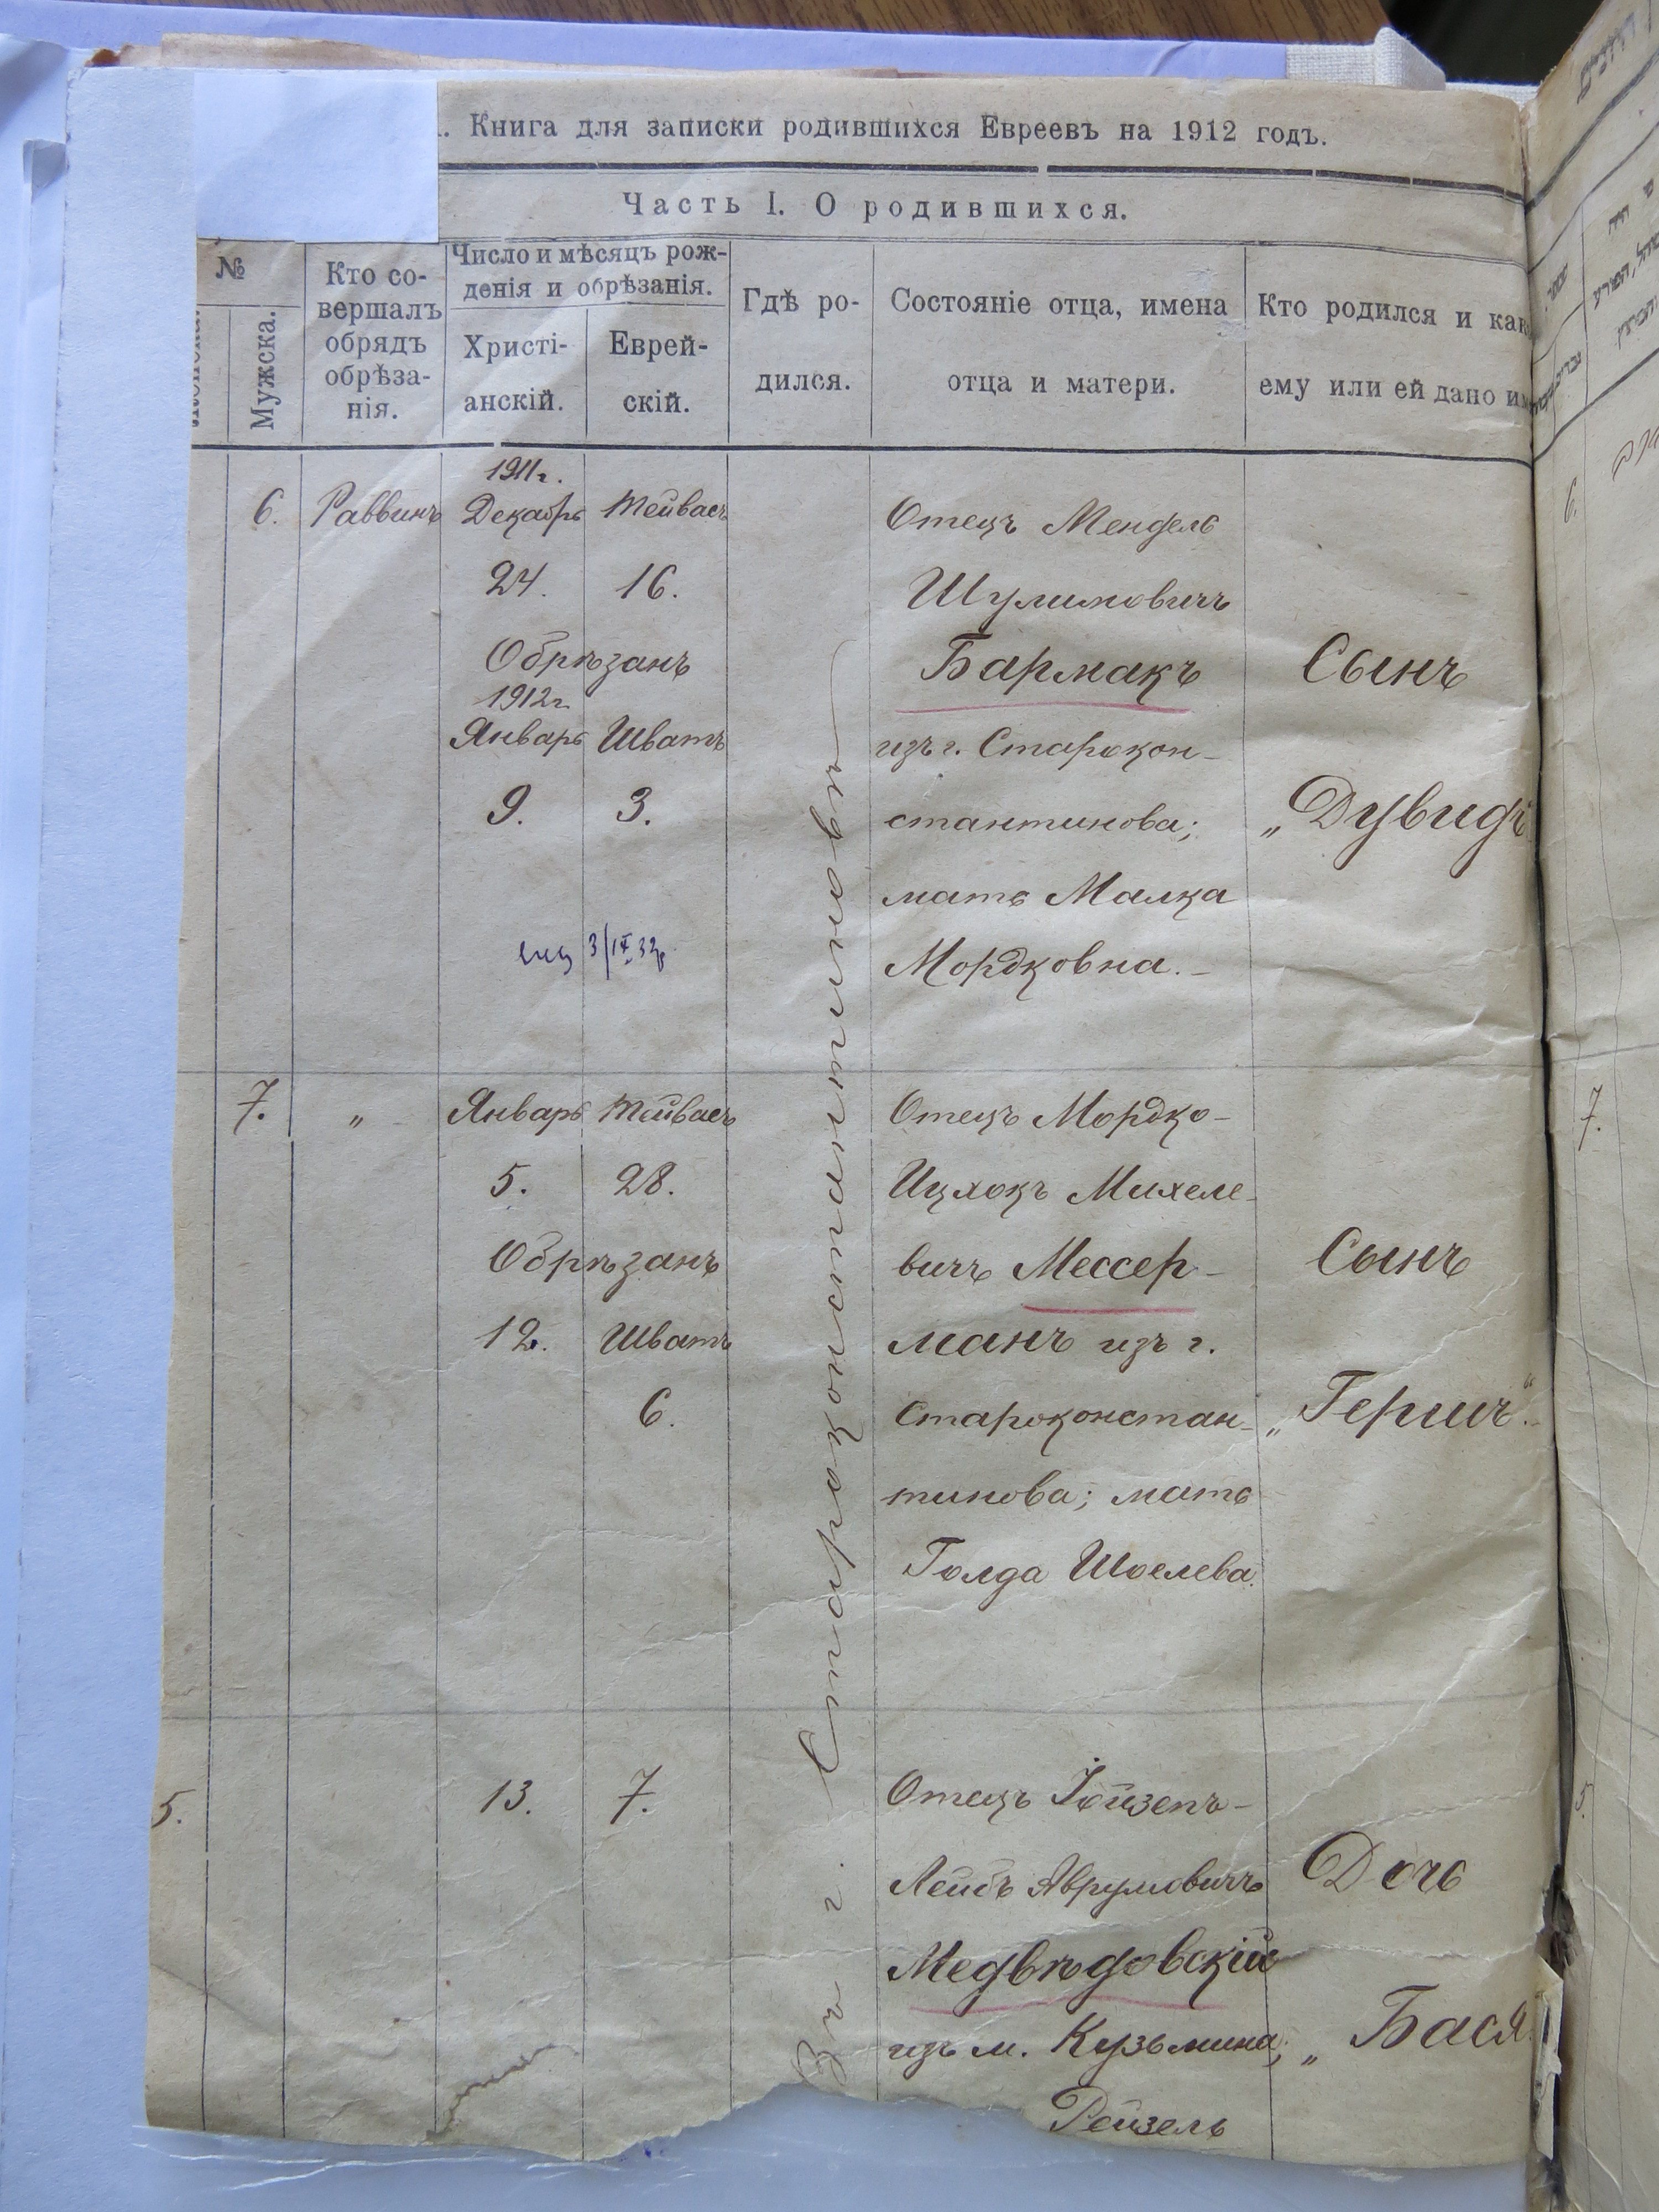 Книга для записки родившихся Евреевъ на 1912 годъ.
Часть I. О родившихся.
№
Мужска.
Кто со-
вершалъ
обрядъ
обрѣза-
нія.
Число и мѣсяцъ рож-
денія и обрѣзанія.
Христі-
анскій.
Еврей-
скій.
Гдѣ ро-
дился.
Состояніе отца, имена
отца и матери.
Кто родился и как
ему или ей дано им
6.
Раввинъ
1911 г.
Декабрь Тейвесъ
24. 16.
Обрѣзанъ
1912 г.
Январь Шватъ
9. 3.
3/IX 32
Въ г. Староконстантиновѣ
Отецъ Мендель
Шулимовичъ
Бармакъ
изъ г. Старокон-
стантинова;
мать Малка
Мордковна.-
Сынъ
„Дувидъ
7.
„
Январь Тейвесъ
5. 28.
Обрѣзанъ
12. Шватъ
6.
Отецъ Мордко-
Ицхокъ Михеле-
вичъ Мессер-
манъ изъ г.
Староконстан-
тинова; мать
Голда Шоелева.
Сынъ
„Гершъ“.
5.
13. 7.
Отецъ Іойзепъ-
Лейбъ Аврумовичъ
Медвѣдовскій
изъ м. Кузьмина;
Рейзель
Дочь
„Бася
6.
7.
5.